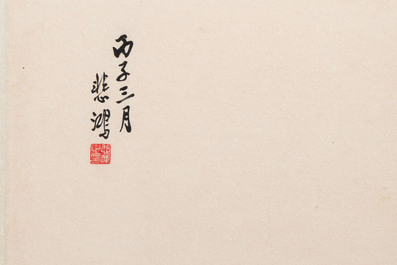 丙子三月
悲鴻